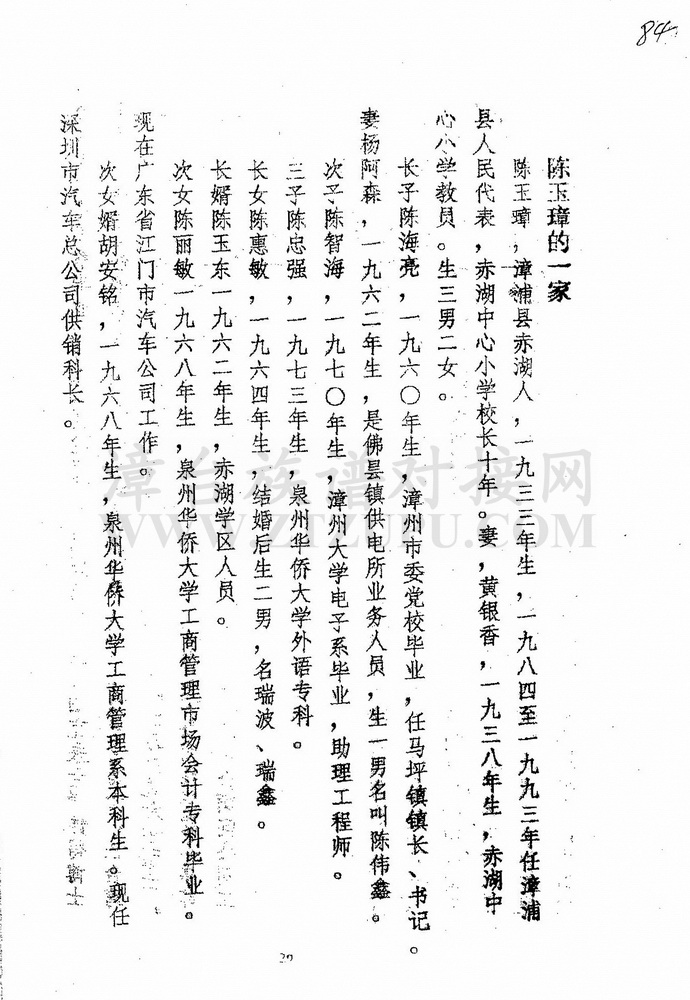 84
陈玉璋的一家
陈玉璋，漳浦县赤湖人，一九三三年生，一九八四至一九九三年任漳浦
县人民代表，赤湖中心小学校长十年。妻，黄银香，一九三八年生，赤湖中
心小学教员。生三男二女。
长子陈海亮，一九六〇年生，漳州市委党校毕业，任马坪镇镇长、书记。
妻杨阿森，一九六二年生，是佛昙镇供电所业务人员，生一男名叫陈伟鑫。
次子陈智海，一九七〇年生，漳州大学电子系毕业，助理工程师。
三子陈忠强，一九七三年生，泉州华侨大学外语专科。
长女陈惠敏，一九六四年生，结婚后生二男，名瑞波、瑞鑫。
长婿陈玉东一九六二年生，赤湖学区人员。
次女陈丽敏一九六八年生，泉州华侨大学工商管理市场会计专科毕业。
现在广东省江门市汽车公司工作。
次女婿胡安铭，一九六八年生，泉州华侨大学工商管理系本科生。现任
深圳市汽车总公司供销科长。
漳台族谱对接网
WWW.ZTZUPU.COM